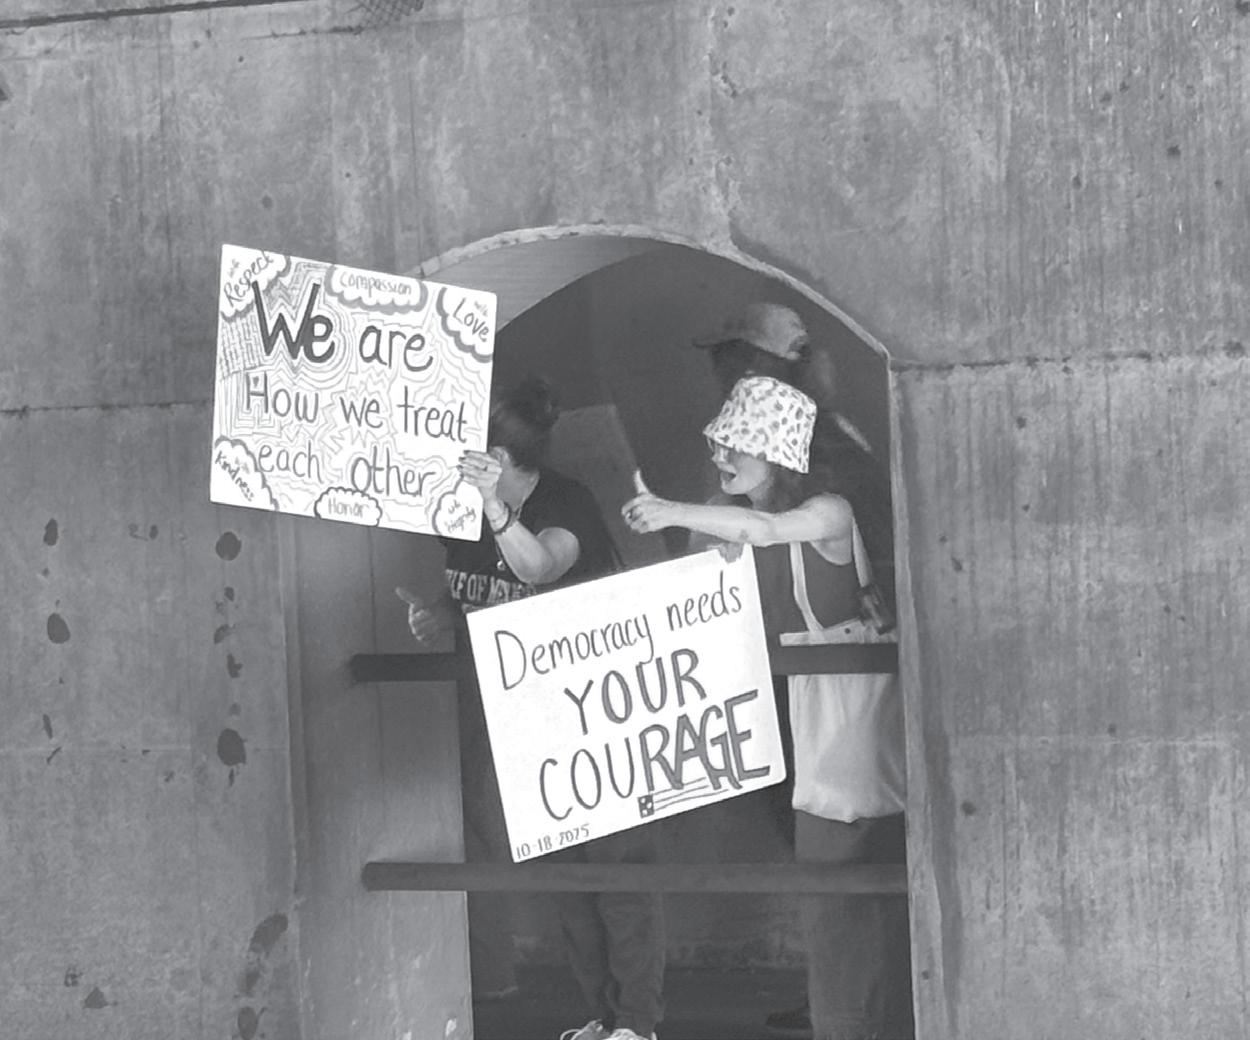 with
Respect
Compassion
with
Love
We are
How we treat
each other
Kindness
Honor
Dignity
Democracy needs
YOUR
COURAGE
10-18-2025